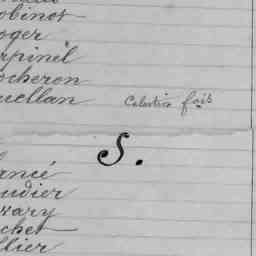 obinot
oger
rpinel
ocheron
uellan Celestin fois
S.
ancé
udier
rary
chet
llier